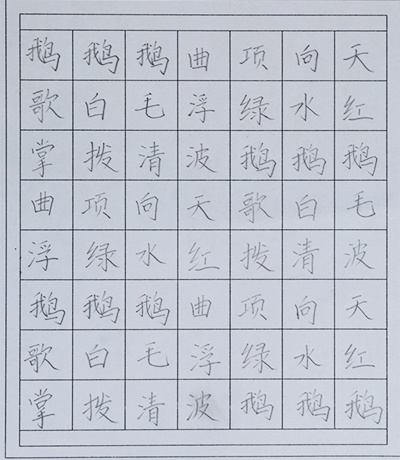 鹅鹅鹅曲项向天
歌白毛浮绿水红
掌拨清波鹅鹅鹅
曲项向天歌白毛
浮绿水红拨清波
鹅鹅鹅曲项向天
歌白毛浮绿水红
掌拨清波鹅鹅鹅